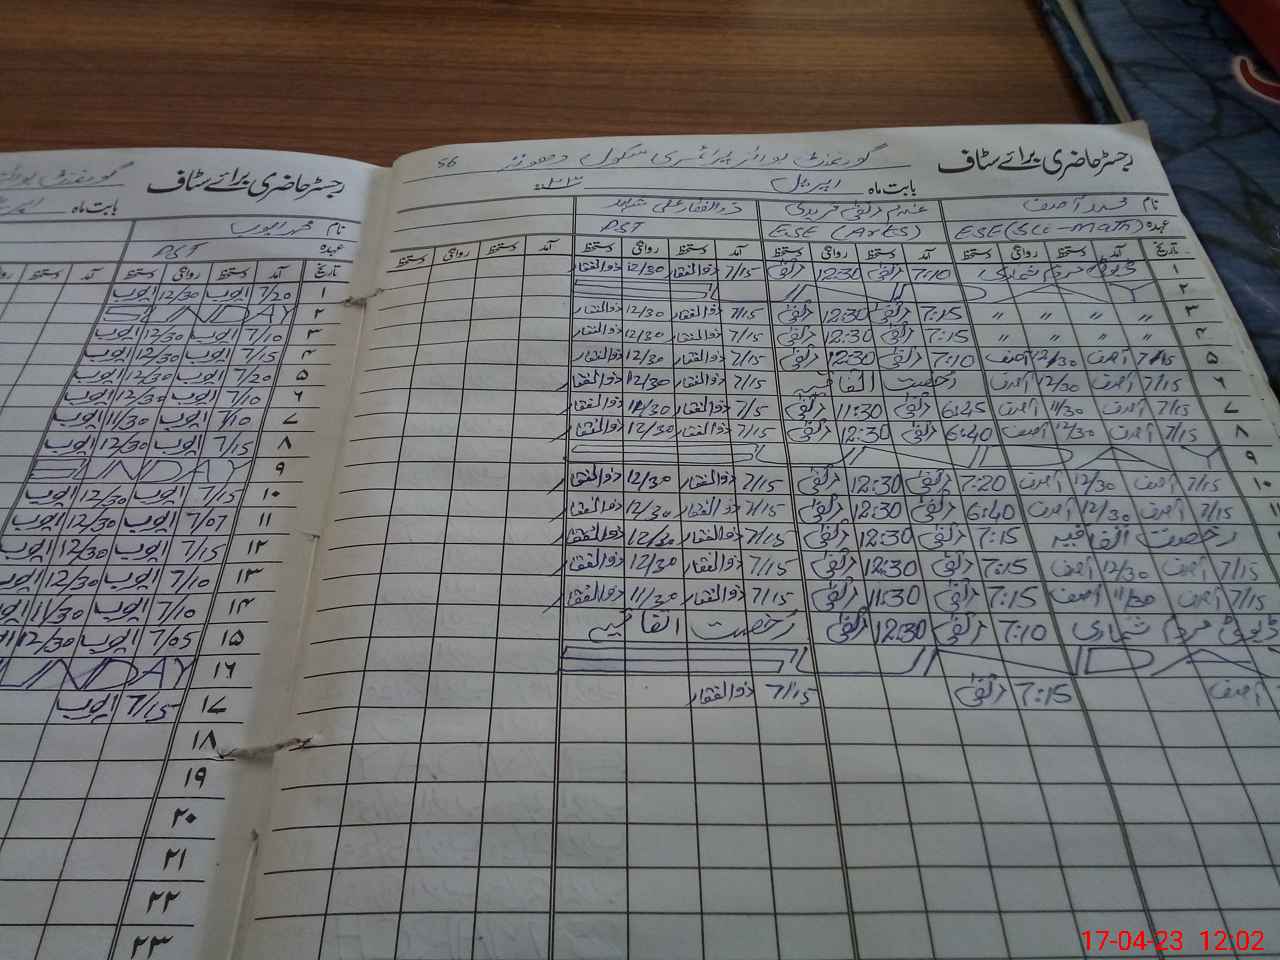 رجسٹر حاضری برائے سٹاف گورنمنٹ بوائز پرائمری سکول 56
بابت ماہ اپریل
نام محمد آصف غلام مرتضیٰ فریدی ذوالفقار علی شاہد
عہدہ ESE (Sci-Math) ESE (Arts) PST
تاریخ آمد دستخط روانگی دستخط آمد دستخط روانگی دستخط آمد دستخط روانگی دستخط آمد دستخط روانگی دستخط
۱ ڈیوٹی مردم شماری 7:10 مرتضیٰ 12:30 مرتضیٰ 7/15 ذوالفقار 12/30 ذوالفقار
۲ SUNDAY
۳ " " " " 7:15 مرتضیٰ 12:30 مرتضیٰ 7/15 ذوالفقار 12/30 ذوالفقار
۴ " " " " 7:15 مرتضیٰ 12:30 مرتضیٰ 7/15 ذوالفقار 12/30 ذوالفقار
۵ 7/15 آصف 12/30 آصف 7:10 مرتضیٰ 12:30 مرتضیٰ 7/15 ذوالفقار 12/30 ذوالفقار
۶ 7/15 آصف 12/30 آصف رخصت اتفاقیہ 7/15 ذوالفقار 12/30 ذوالفقار
۷ 7/15 آصف 11/30 آصف 6:45 مرتضیٰ 11:30 مرتضیٰ 7/5 ذوالفقار 11/30 ذوالفقار
۸ 7/15 آصف 12/30 آصف 6:40 مرتضیٰ 12:30 مرتضیٰ 7/15 ذوالفقار 12/30 ذوالفقار
۹ SUNDAY
۱۰ 7/15 آصف 12/30 آصف 7:20 مرتضیٰ 12:30 مرتضیٰ 7/15 ذوالفقار 12/30 ذوالفقار
7/15 آصف 12/30 آصف 6:40 مرتضیٰ 12:30 مرتضیٰ 7/15 ذوالفقار 12/30 ذوالفقار
رخصت اتفاقیہ 7:15 مرتضیٰ 12:30 مرتضیٰ 7/15 ذوالفقار 12/30 ذوالفقار
7/15 آصف 12/30 آصف 7:15 مرتضیٰ 12:30 مرتضیٰ 7/15 ذوالفقار 12/30 ذوالفقار
7/15 آصف 11/30 آصف 7:15 مرتضیٰ 11:30 مرتضیٰ 7/15 ذوالفقار 11/30 ذوالفقار
ڈیوٹی مردم شماری 7:10 مرتضیٰ 12:30 مرتضیٰ رخصت اتفاقیہ
SUNDAY
آصف 7:15 مرتضیٰ 7/15 ذوالفقار
رجسٹر حاضری برائے سٹاف گورنمنٹ
بابت ماہ
نام محمد ایوب
عہدہ PST
تاریخ آمد دستخط روانگی دستخط آمد دستخط
۱ 7/20 ایوب 12/30 ایوب
۲ SUNDAY
۳ 7/10 ایوب 12/30 ایوب
۴ 7/15 ایوب 12/30 ایوب
۵ 7/20 ایوب 12/30 ایوب
۶ 7/10 ایوب 12/30 ایوب
۷ 7/10 ایوب 11/30 ایوب
۸ 7/15 ایوب 12/30 ایوب
۹ SUNDAY
۱۰ 7/15 ایوب 12/30 ایوب
۱۱ 7/07 ایوب 12/30 ایوب
۱۲ 7/15 ایوب 12/30 ایوب
۱۳ 7/10 ایوب 12/30 ایوب
۱۴ 7/10 ایوب 11/30 ایوب
۱۵ 7/05 ایوب 12/30
۱۶ SUNDAY
۱۷ 7/15 ایوب
۱۸
۱۹
۲۰
۲۱
۲۲
۲۳
17-04-23 12:02